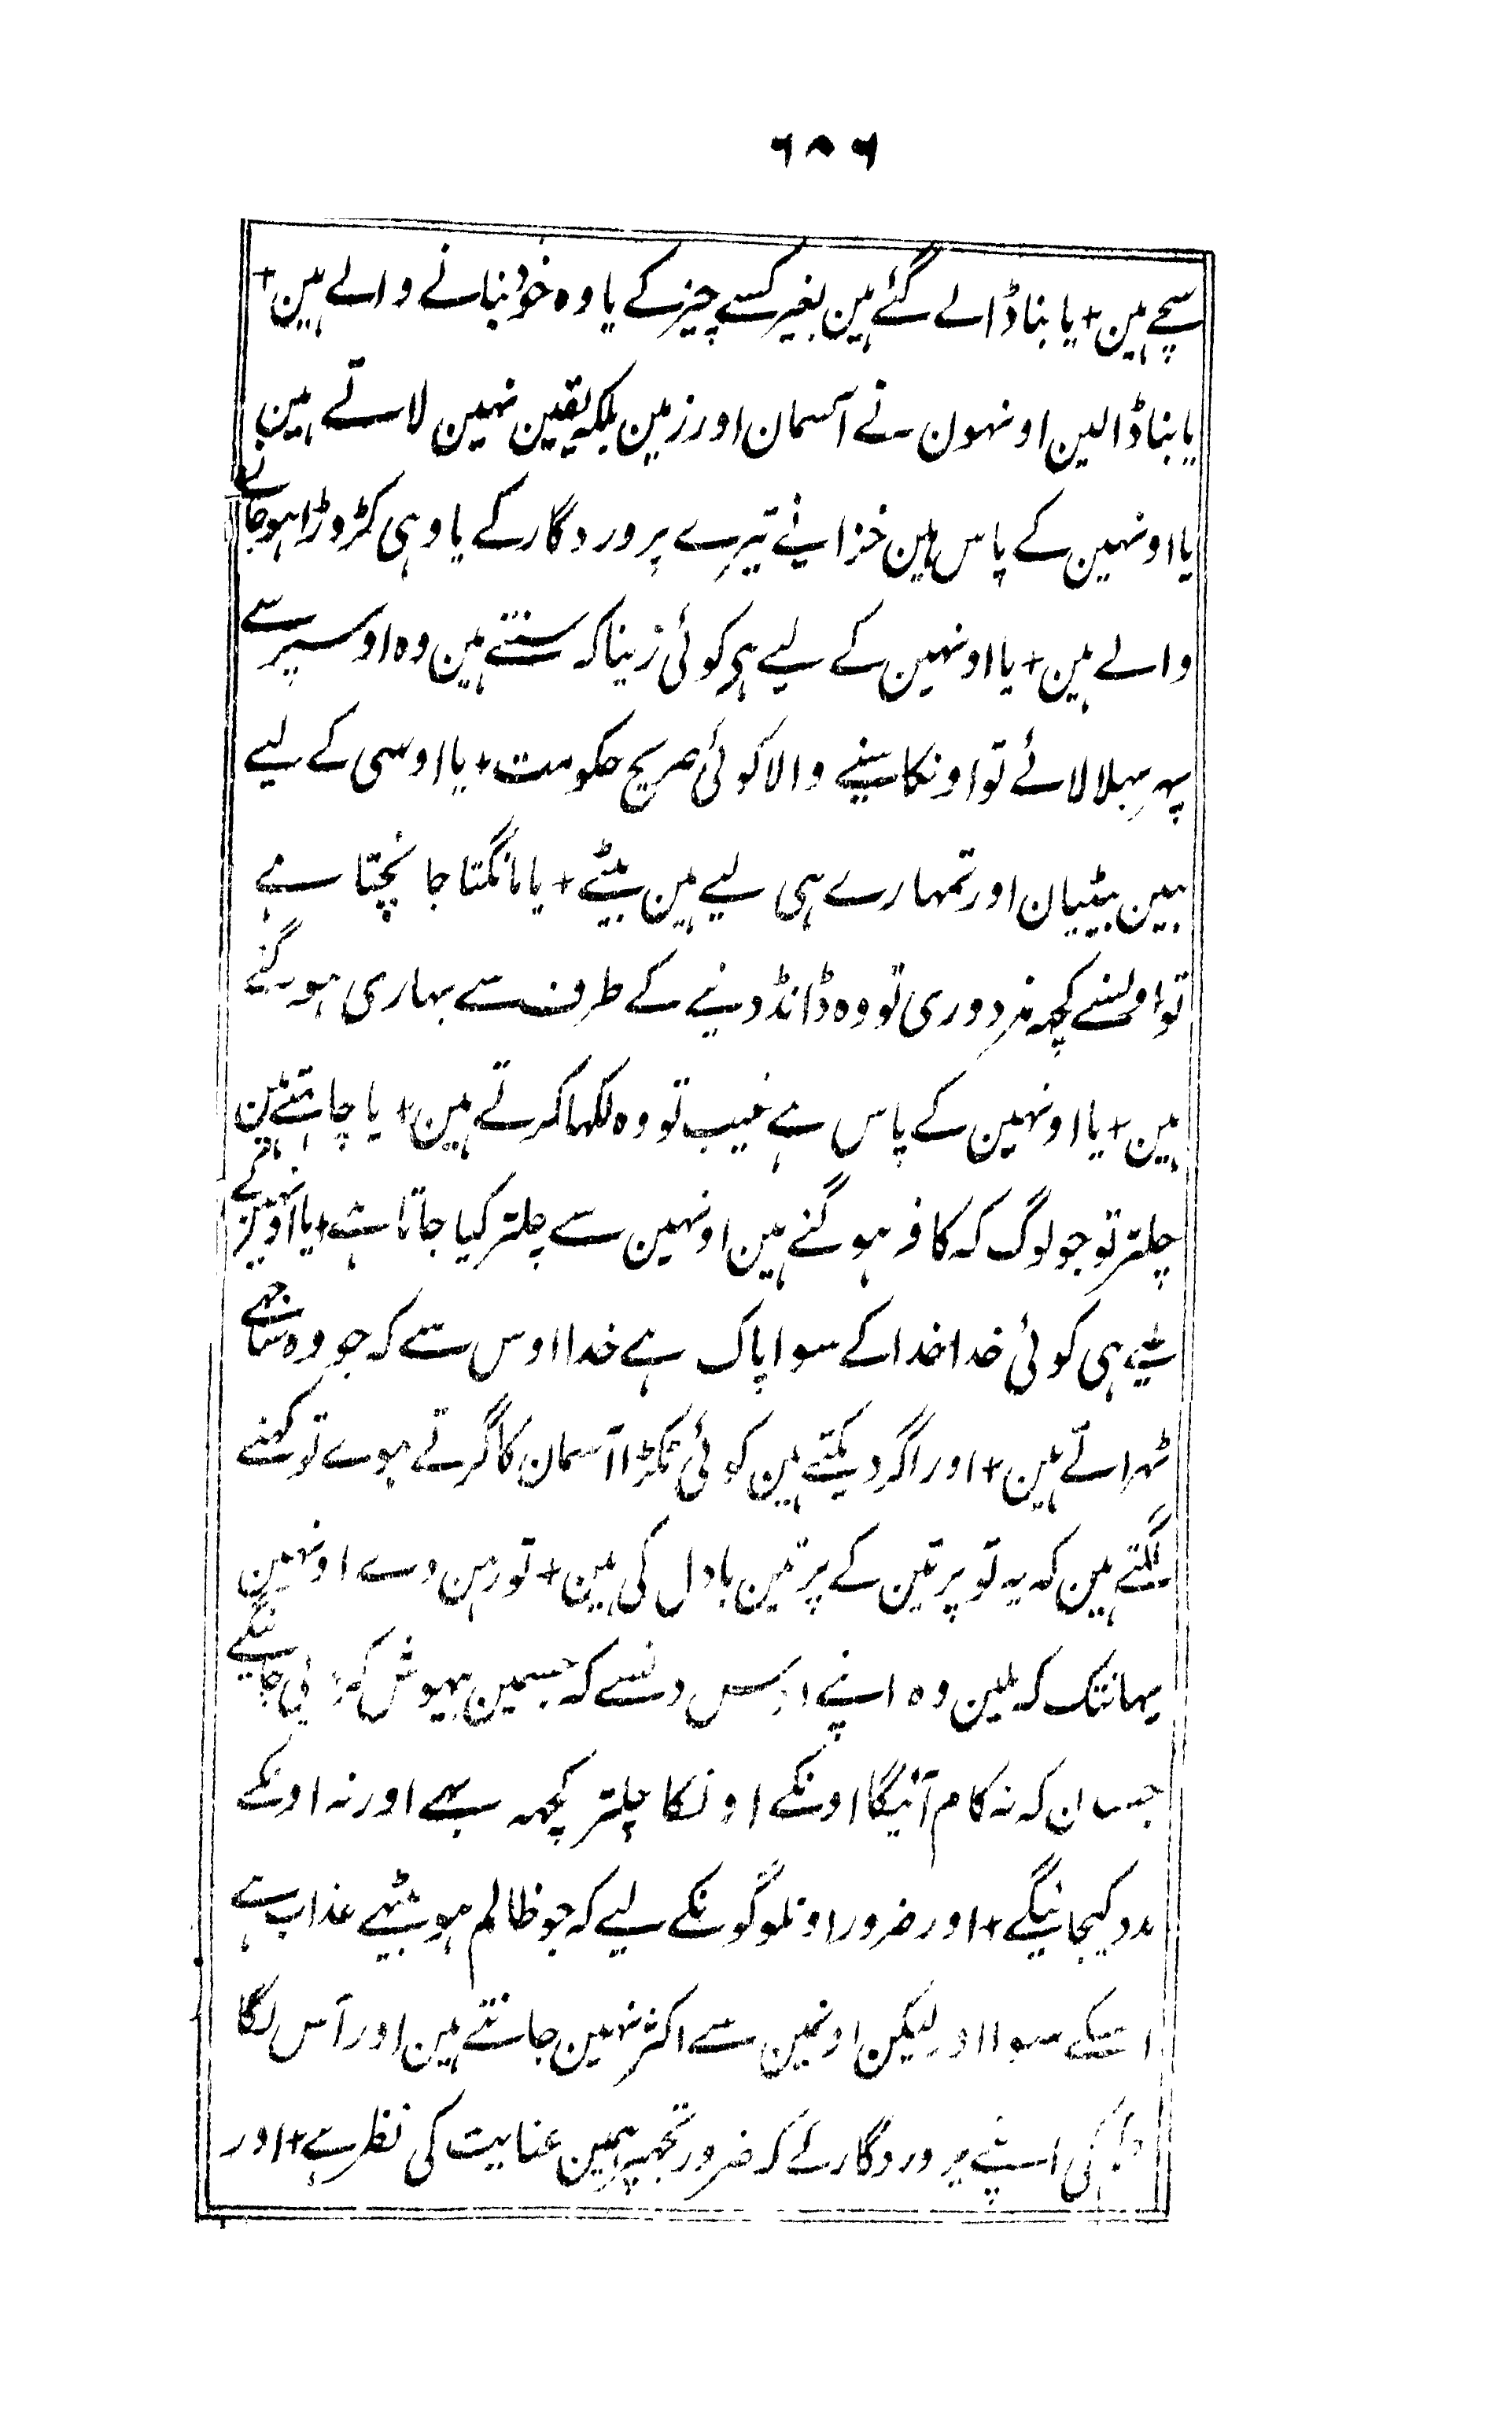 ٦٨٦
سچے ہین + یا بنا ڈالے گئے ہین بغیر کسے چیز کے یا وہ خود بنانے والے ہین +
یا بنا ڈالین اونہون نے آسمان اور زمین بلکہ یقین نہین لاتے ہین
یا اونہین کے پاس ہین خزانے تیرے پروردگار کے یا وہی کڑوڑا ہو جانے
والے ہین + یا اونہین کے لیے ہی کوئی زینا کہ سنتے ہین وہ اوسپر سے
پہر بہلا لائے تو اونکا سننے والا کوئی صریح حکومت + یا اوسی کے لیے
ہین بیٹیان اور تمہارے ہی لیے ہین بیٹے + یا مانگتا جانچتا ہے
تو اونسے کچہ مزدوری تو وہ ڈانڈ دینے کے طرف سے بہاری ہو گئے
ہین + یا اونہین کے پاس ہے غیب تو وہ لکہا کرتے ہین + یا چاہتے ہین
چلتر تو جو لوگ کہ کافر ہو گئے ہین اونہین سے چلتر کیا جاتا ہے + یا اونہین کے
لیے ہی کوئی خدا خدا کے سوا پاک ہے خدا اوس سے کہ جو وہ ساجہے
ٹہراتے ہین + اور اگر دیکتے ہین کوئی ٹکڑا آسمان کا گرتے ہوے تو کہنے
لگتے ہین کہ یہ تو پرتین کے پرتین بادل کی ہین + تو رہن دے اونہین
یہانتک کہ ملین وہ اپنے اوس دنسے کہ جسمین بیہوش کر جائینگے
جسدن کہ نہ کام آئیگا اونکے اونکا چلتر کچہہ بہے اور نہ اونکے
مدد کیجائیگے + اور ضرور اونلوگونکے لیے کہ جو ظالم ہو بیٹہے عذاب ہے
اسکے سوا اور لیکن اونمین سے اکثر نہین جانتے ہین اور آس لگا
کی اپنے پروردگار کے کہ ضرور تجہپر ہمین عنایت کی نظر ہے + اور